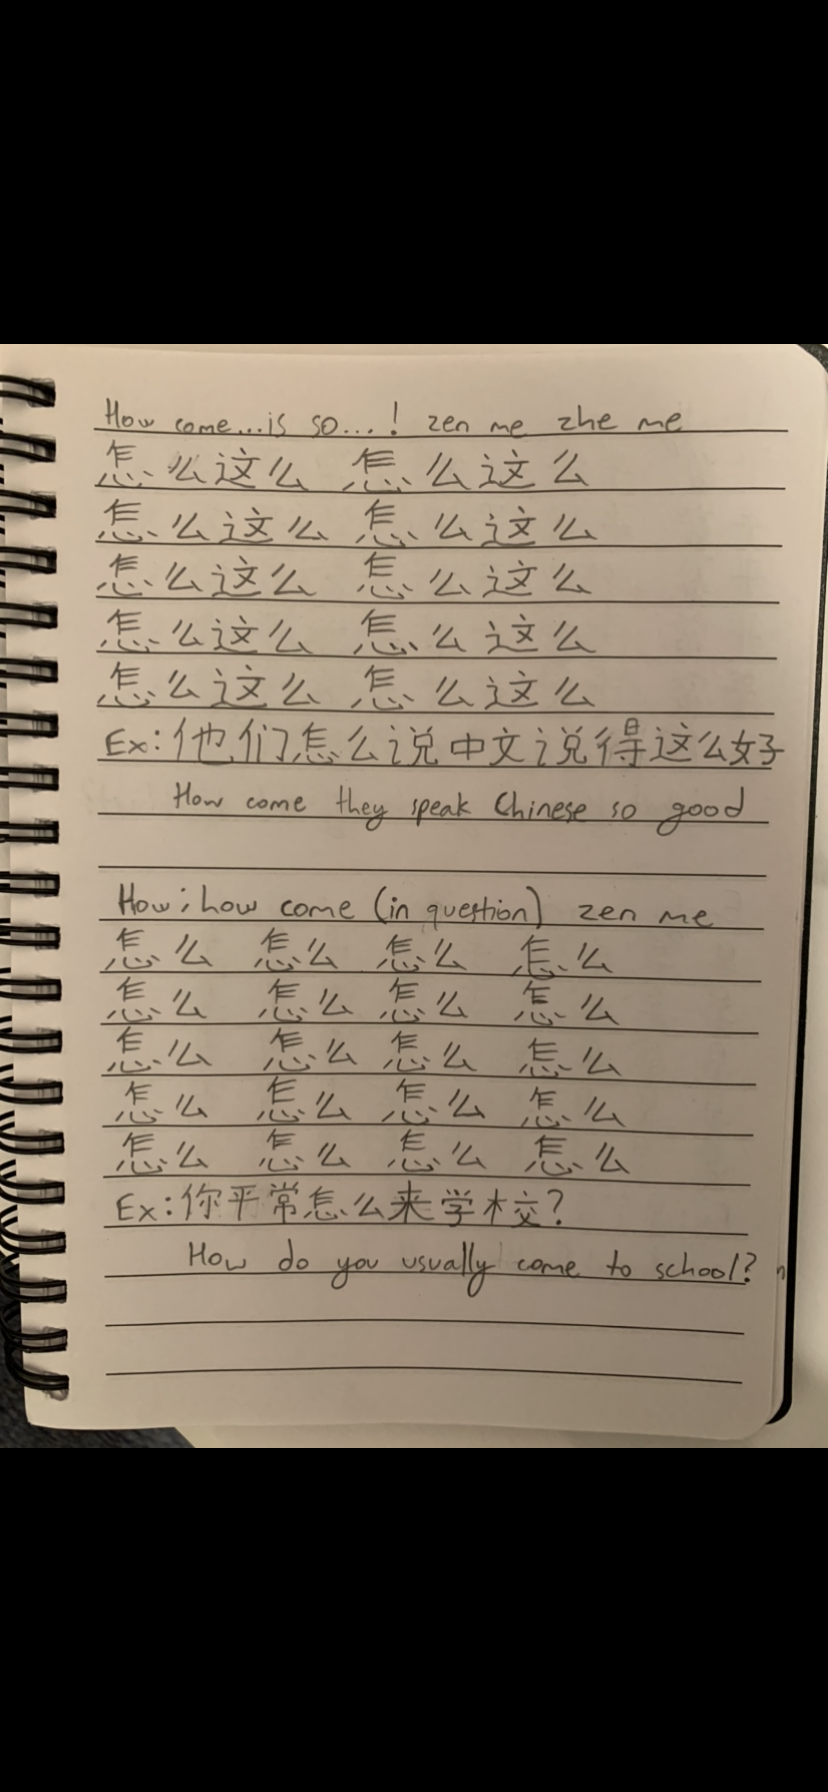 How come...is so...! zen me zhe me
怎么这么 怎么这么
怎么这么 怎么这么
怎么这么 怎么这么
怎么这么 怎么这么
怎么这么 怎么这么
Ex: 他们怎么说中文说得这么好
How come they speak Chinese so good
How; how come (in question) zen me
怎么 怎么 怎么 怎么
怎么 怎么 怎么 怎么
怎么 怎么 怎么 怎么
怎么 怎么 怎么 怎么
怎么 怎么 怎么 怎么
Ex: 你平常怎么来学校?
How do you usually come to school?